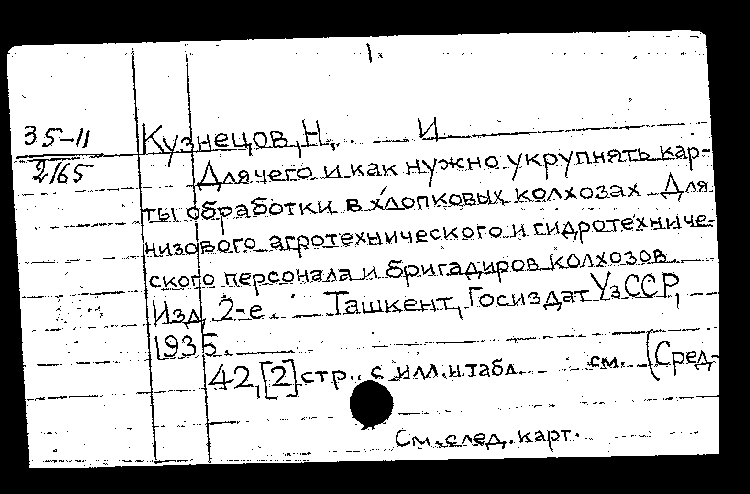 1.
35-11
2165
Кузнецов, Н. И
Для чего и как нужно укрупнять кар-
ты обработки в хлопковых колхозах. Для
низового агротехнического и гидротехниче-
ского персонала и бригадиров колхозов.
Изд. 2-е. Ташкент, Госиздат УзССР,
1935.
42, [2] стр. с илл. и табл. см. (Сред-
См. след. карт.